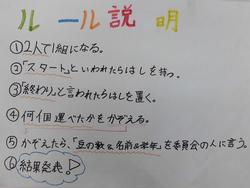 ルール説明
①2人で1組になる。
②「スタート」といわれたらはしを持つ。
③「終わり」と言われたらはしを置く。
④何個運べたかをかぞえる。
⑤かぞえたら、「豆の数&名前&学年」を委員会の人に言う。
⑥結果発表!